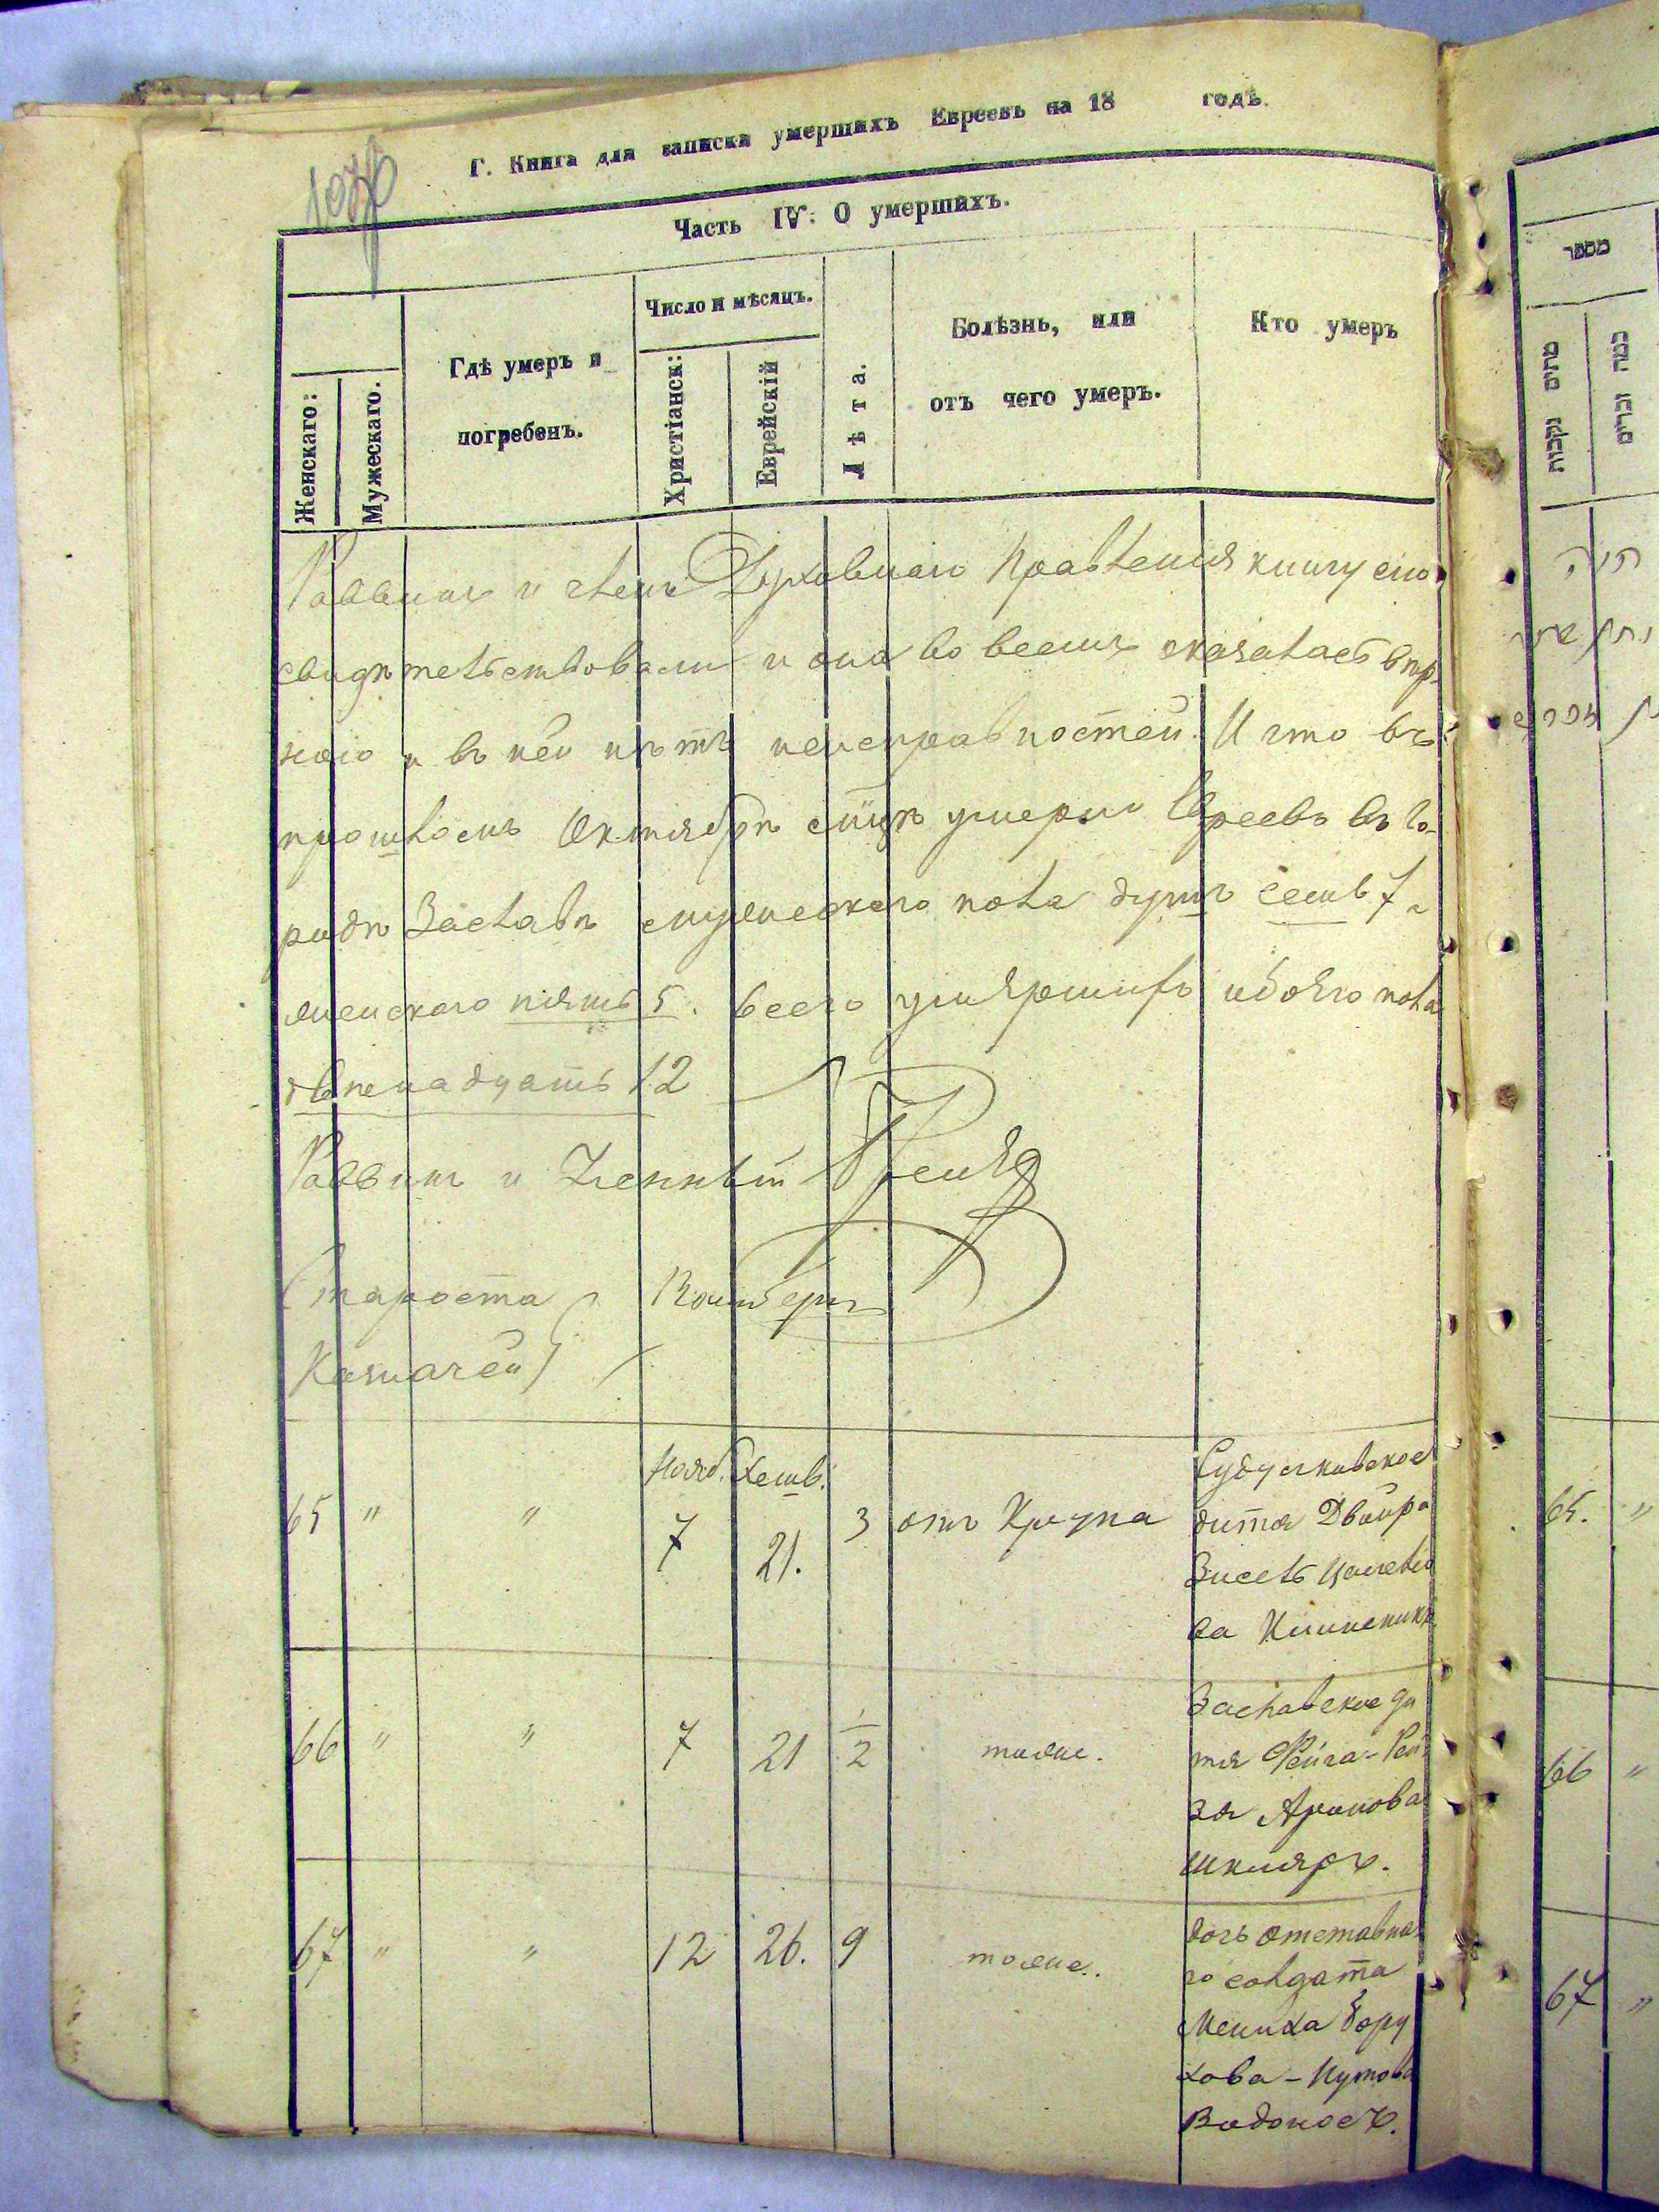 Г. Книга для записки умершихъ Евреевъ на 18 годъ.
Часть IV. О умершихъ.
Женскаго:
Мужескаго.
Гдѣ умеръ и
погребенъ.
Число и мѣсяцъ.
Христіанск:
Еврейскій
Лѣта.
Болѣзнь, или
отъ чего умеръ.
Кто умеръ
Раввинъ и члены Духовнаго Правленія книгу сію
свидѣтельствовали и она во всемъ оказалась вѣр-
ною и въ ней нѣтъ неисправностей. И что въ
прошломъ Октябрѣ м͠цѣ умерло Евреевъ въ Го-
родѣ Заславѣ мужескаго пола душъ семь 7.
женскаго пять 5. всего умяршихъ обояго пола
двѣнадцать 12
Раввинъ и Ученный
Староста
Казначей
Нояб. Хешв.
65 " " 7 21. 3 отъ Крупа
дитя Двойра
Зисель
ва
66 " " 7 21 1/2 тоже.
Заславское ди
тя Фейга-Рей
зя Аронова
Шкляръ.
67 " " 12 26. 9 тоже.
дочь отставна
го солдата
Мениха Бору
хова-
Водоносъ.
מספר
מתים נקבות
כמה זכרים
65. "
66 "
67 "